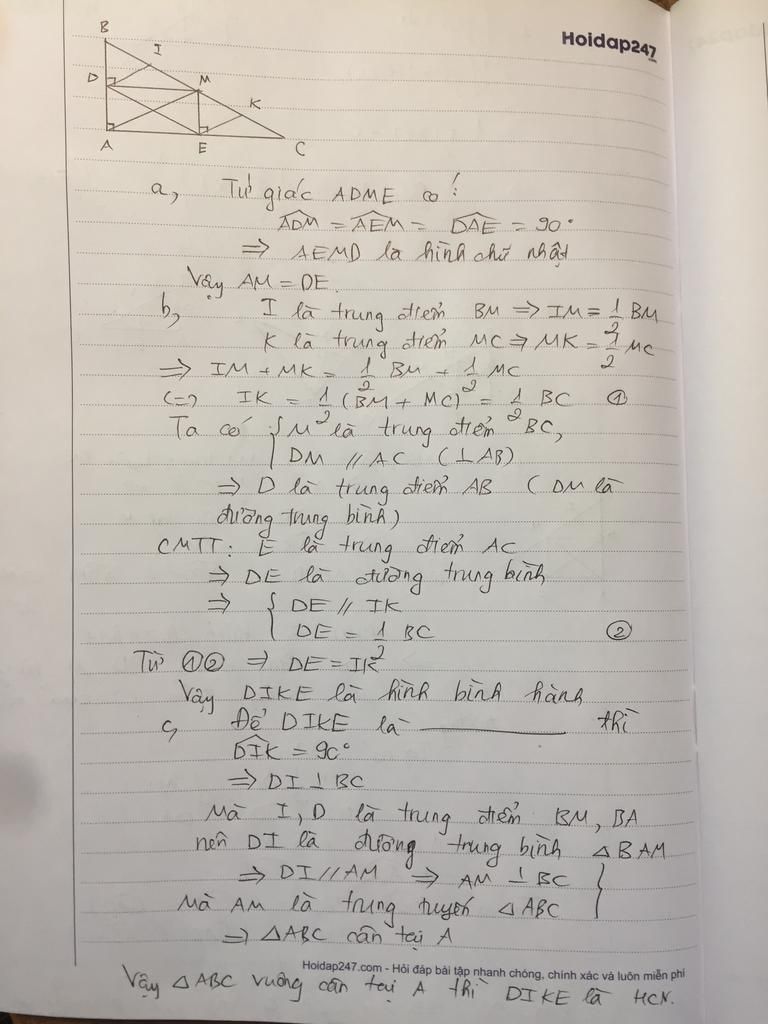 Hoidap247
.com
B
I
D
M
K
A
E
C
a, Tứ giác ADME có:
ADM = AEM = DAE = 90°
=> AEMD là hình chữ nhật
Vậy AM = DE.
b, I là trung điểm BM => IM = 1/2 BM
K là trung điểm MC => MK = 1/2 MC
=> IM + MK = 1/2 BM + 1/2 MC
(=) IK = 1/2 (BM + MC) = 1/2 BC ①
Ta có { M là trung điểm BC,
DM // AC (⊥ AB)
=> D là trung điểm AB (DM là
đường trung bình)
CMTT: E là trung điểm AC
=> DE là đường trung bình
=> { DE // IK
DE = 1/2 BC ②
Từ ①② => DE = IK
Vậy DIKE là hình bình hành
c, Để DIKE là thì
DIK = 90°
=> DI ⊥ BC
Mà I, D là trung điểm BM, BA
nên DI là đường trung bình △BAM
=> DI // AM => AM ⊥ BC }
Mà AM là trung tuyến △ABC
=> △ABC cân tại A
Hoidap247.com - Hỏi đáp bài tập nhanh chóng, chính xác và luôn miễn phí
Vậy △ABC vuông cân tại A thì DIKE là HCN.